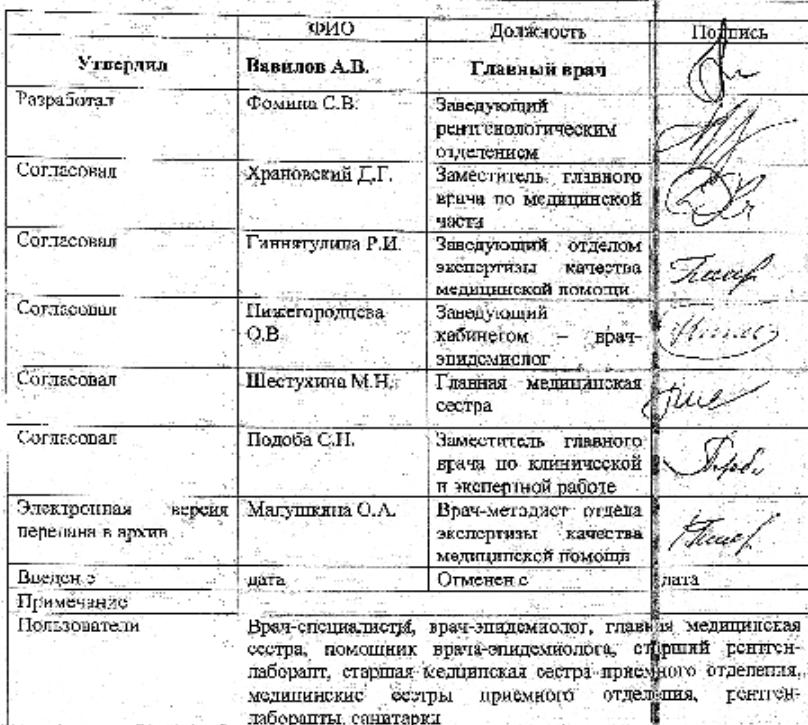 ФИО Должность Подпись
Утвердил Вавилов А.В. Главный врач
Разработал Фомина С.В. Заведующий
рентгенологическим
отделением
Согласовал Храновский Д.Г. Заместитель главного
врача по медицинской
части
Согласовал Гиннятулина Р.И. Заведующий отделом
экспертизы качества
медицинской помощи
Согласовал Нижегородцева Заведующий
О.В. кабинетом – врач-
эпидемиолог
Согласовал Шестухина М.Н. Главная медицинская
сестра
Согласовал Подоба С.Н. Заместитель главного
врача по клинической
и экспертной работе
Электронная версия Матушкина О.А. Врач-методист отдела
передана в архив экспертизы качества
медицинской помощи
Введен с дата Отменен с дата
Примечание
Пользователи Врач-специалисты, врач-эпидемиолог, главная медицинская
сестра, помощник врача-эпидемиолога, старший рентген-
лаборант, старшая медицинская сестра приемного отделения,
медицинские сестры приемного отделения, рентген-
лаборанты, санитарки